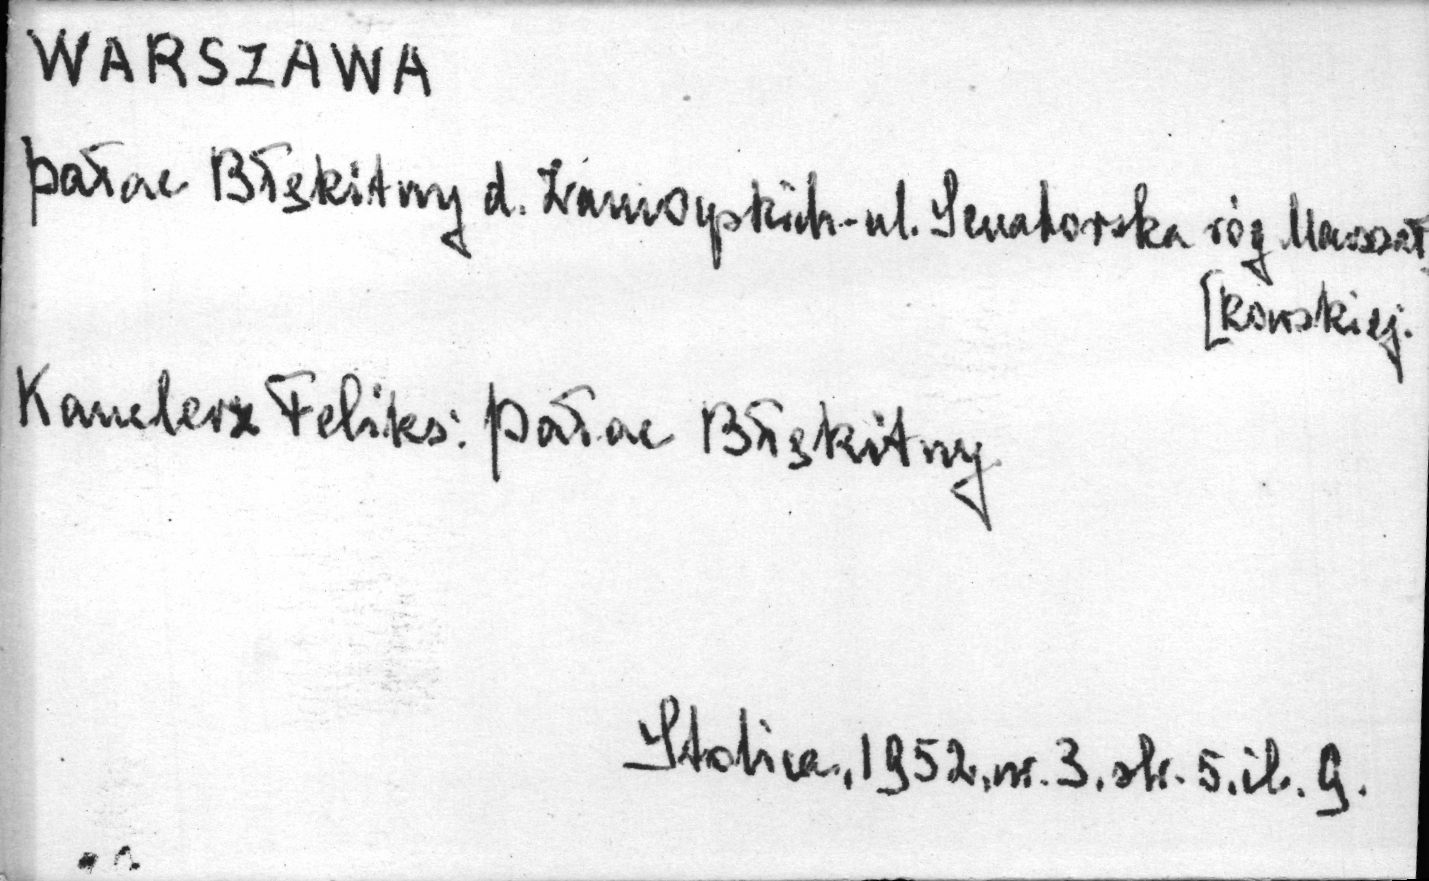 WARSZAWA
pałac Błękitny d. Zamoyskich - ul. Senatorska róg Marszał
[kowskiej.
Kanclerz Feliks: pałac Błękitny
Stolica, 1952, nr. 3, str. 5, il. 9.